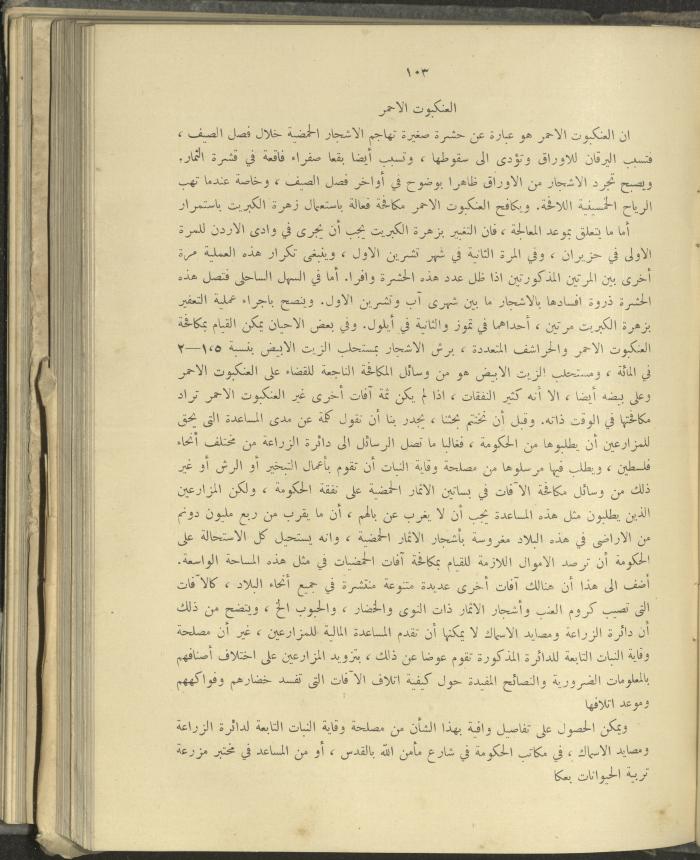 ١٠٣
العنكبوت الاحمر
ان العنكبوت الاحمر هو عبارة عن حشرة صغيرة تهاجم الاشجار الحمضية خلال فصل الصيف ،
فتسبب اليرقان للاوراق وتؤدى الى سقوطها ، وتسبب أيضا بقعا صفراء فاقعة في قشرة الثمار.
ويصبح تجرد الاشجار من الاوراق ظاهرا بوضوح في أواخر فصل الصيف ، وخاصة عندما تهب
الرياح الخمسينية اللافحة. ويكافح العنكبوت الاحمر مكافحة فعالة باستعمال زهرة الكبريت باستمرار
أما ما يتعلق بموعد المعالجة ، فان التغبير بزهرة الكبريت يجب أن يجرى في وادى الاردن للمرة
الاولى في حزيران ، وفي المرة الثانية في شهر تشرين الاول ، وينبغى تكرار هذه العملية مرة
أخرى بين المرتين المذكورتين اذا ظل عدد هذه الحشرة وافرا. أما في السهل الساحلى فتصل هذه
الحشرة ذروة افسادها بالاشجار ما بين شهرى آب وتشرين الاول. وينصح باجراء عملية التعفير
بزهرة الكبريت مرتين ، أحداهما في تموز والثانية في أيلول. وفي بعض الاحيان يمكن القيام بمكافحة
العنكبوت الاحمر والحراشف المتعددة ، برش الاشجار بمستحلب الزيت الابيض بنسبة ١،٥—٢
في المائة ، ومستحلب الزيت الابيض هو من وسائل المكافحة الناجعة للقضاء على العنكبوت الاحمر
وعلى بيضه أيضا ، الا أنه كثير النفقات ، اذا لم يكن ثمة آفات أخرى غير العنكبوت الاحمر تراد
مكافحتها في الوقت ذاته. وقبل أن نختتم بحثنا ، يجدر بنا أن نقول كلمة عن مدى المساعدة التى يحق
للمزارعين أن يطلبوها من الحكومة ، فغالبا ما تصل الرسائل الى دائرة الزراعة من مختلف أنحاء
فلسطين ، ويطلب فيها مرسلوها من مصلحة وقاية النبات أن تقوم بأعمال التبخير أو الرش أو غير
ذلك من وسائل مكافحة الآفات في بساتين الاثمار الحمضية على نفقة الحكومة ، ولكن المزارعين
الذين يطلبون مثل هذه المساعدة يجب أن لا يغرب عن بالهم ، أن ما يقرب من ربع مليون دونم
من الاراضى في هذه البلاد مغروسة بأشجار الاثمار الحمضية ، وانه يستحيل كل الاستحالة على
الحكومة أن ترصد الاموال اللازمة للقيام بمكافحة آفات الحمضيات في مثل هذه المساحة الواسعة.
أضف الى هذا أن هنالك آفات أخرى عديدة متنوعة منتشرة في جميع أنحاء البلاد ، كالآفات
التى تصيب كروم العنب وأشجار الاثمار ذات النوى والخضار ، والحبوب الخ ، ويتضح من ذلك
أن دائرة الزراعة ومصايد الاسماك لا يمكنها أن تقدم المساعدة المالية للمزارعين ، غير أن مصلحة
وقاية النبات التابعة للدائرة المذكورة تقوم عوضا عن ذلك ، بتزويد المزارعين على اختلاف أصنافهم
بالمعلومات الضرورية والنصائح المفيدة حول كيفية اتلاف الآفات التى تفسد خضارهم وفواكههم
وموعد اتلافها
ويمكن الحصول على تفاصيل وافية بهذا الشأن من مصلحة وقاية النبات التابعة لدائرة الزراعة
ومصايد الاسماك ، في مكاتب الحكومة في شارع مأمن الله بالقدس ، أو من المساعد في مختبر مزرعة
تربية الحيوانات بعكا